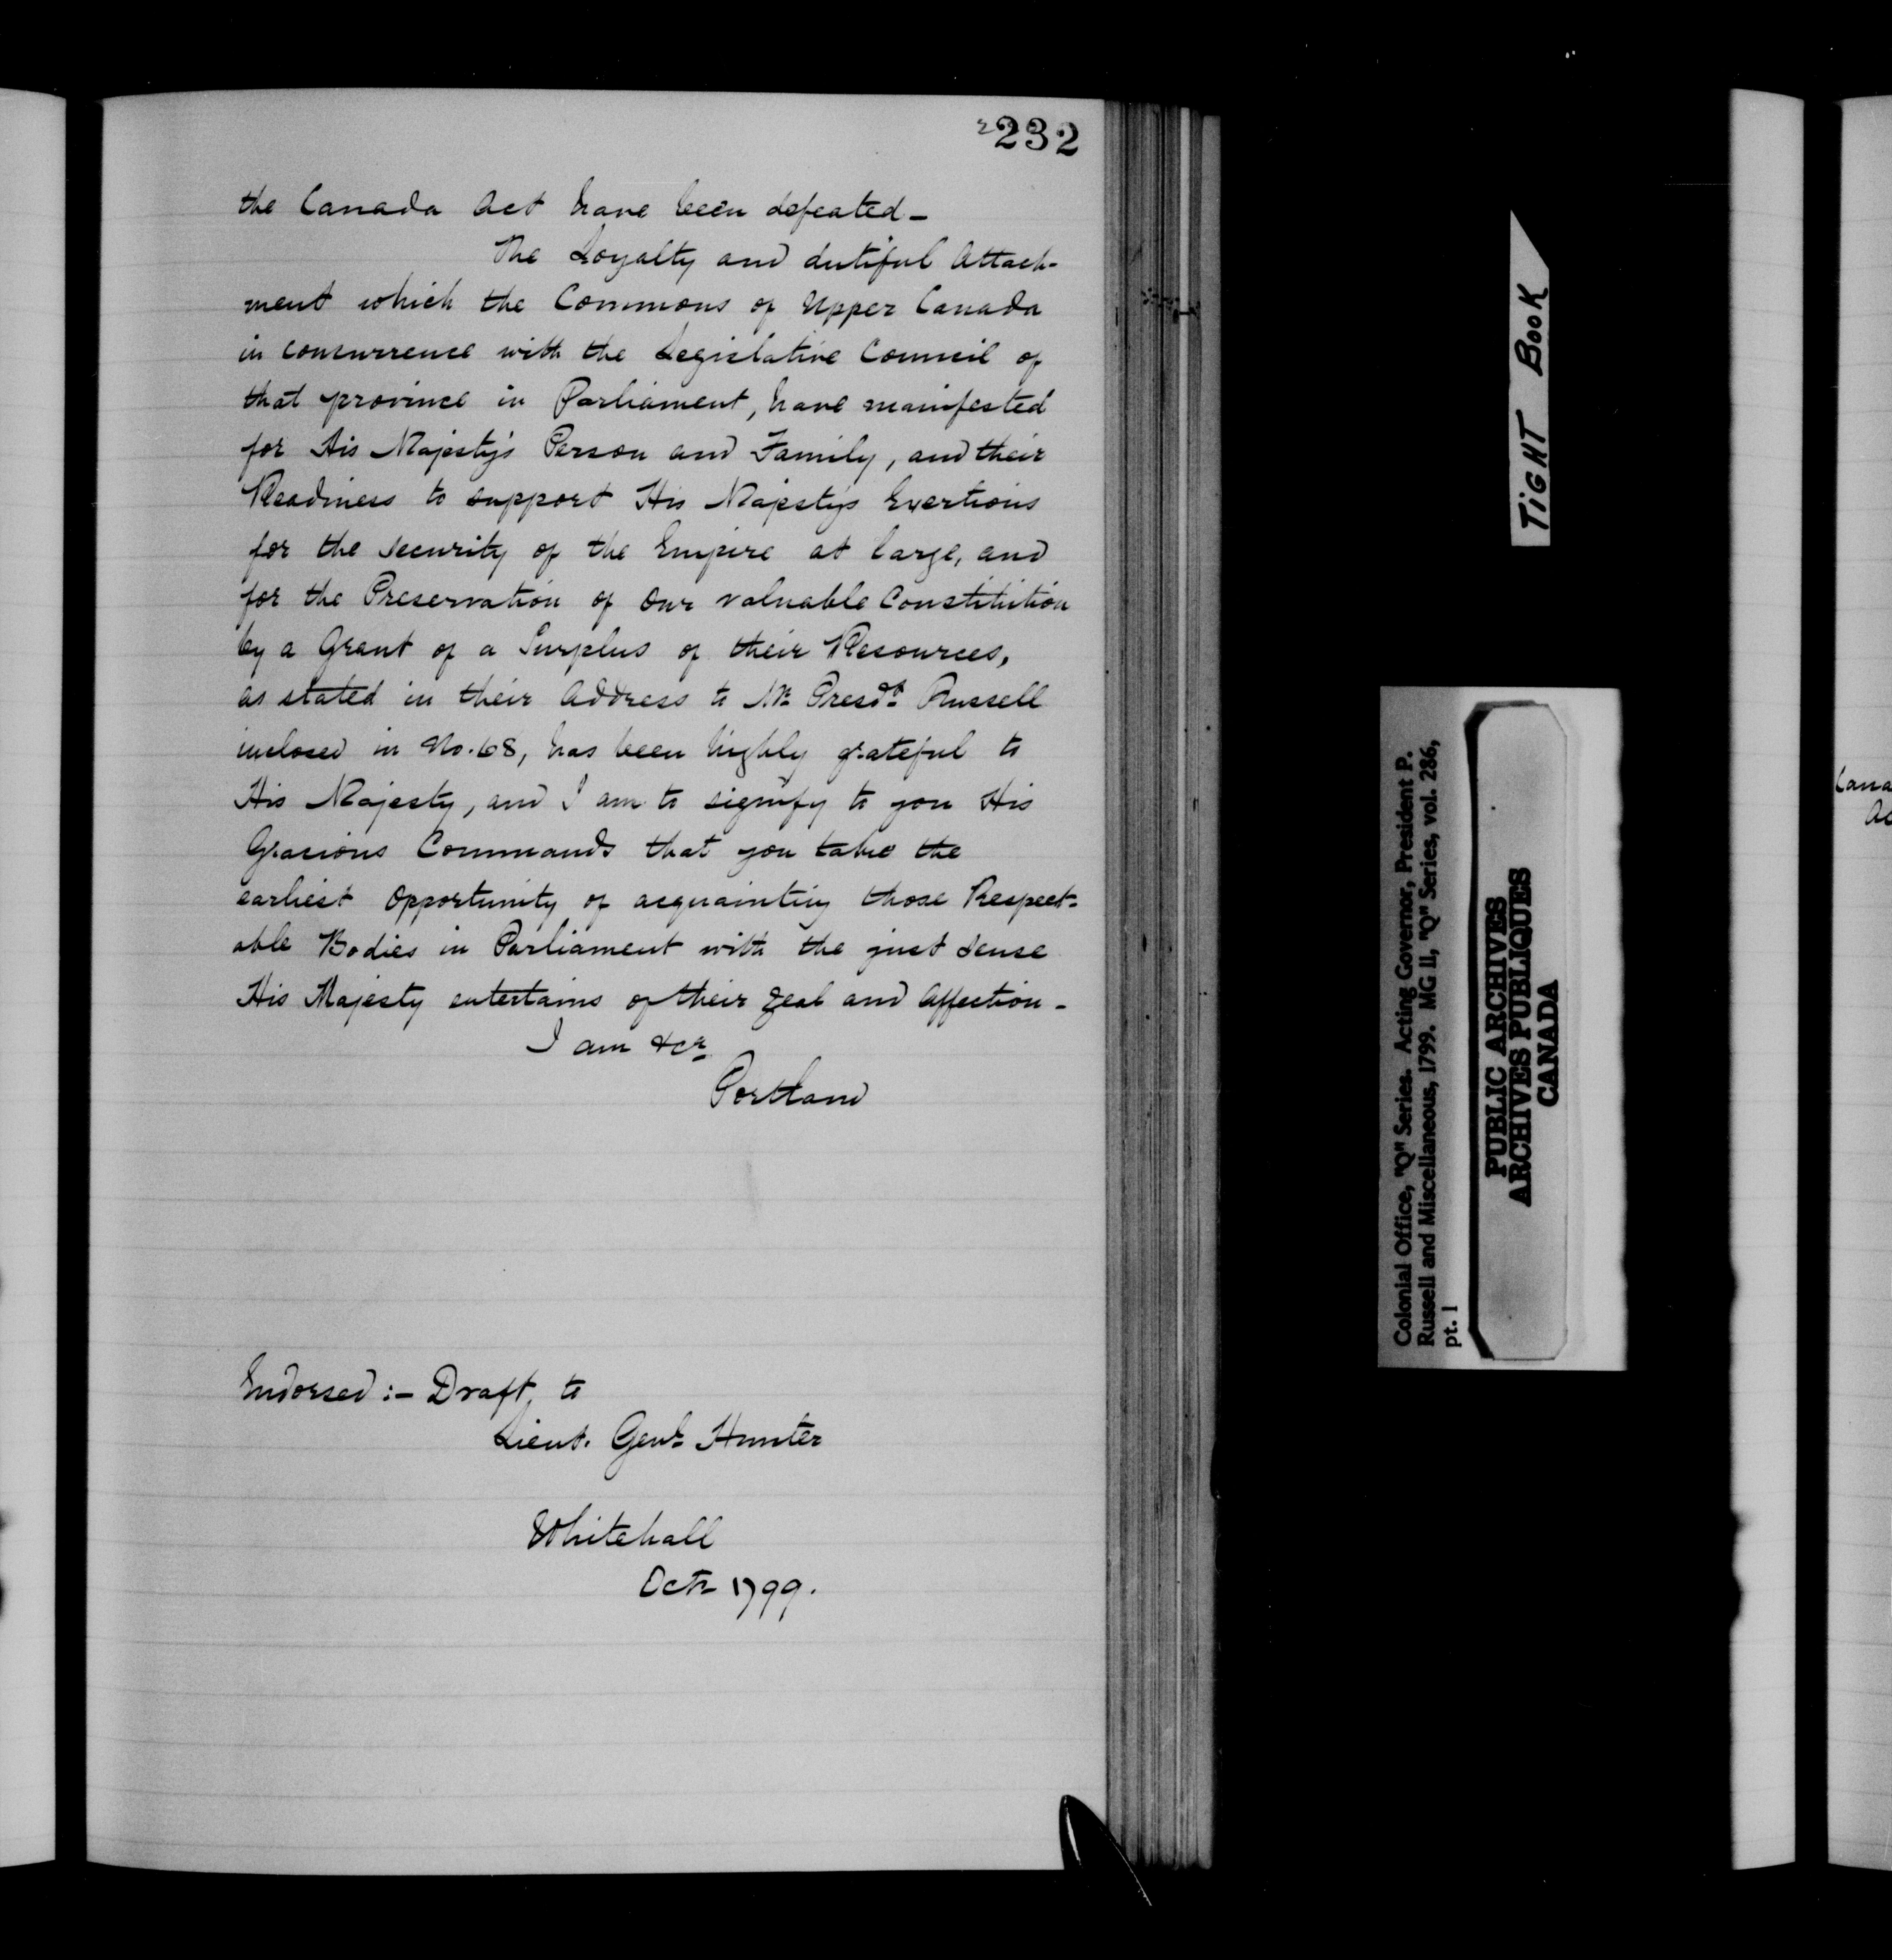 232
the Canada Act have been defeated—
The Loyalty and dutiful Attach-
ment which the Commons of Upper Canada
in concurrence with the Legislative Council of
that province in Parliament, have manifested
for His Majesty's Person and Family, and their
Readiness to support His Majesty's Exertions
for the security of the Empire at large, and
for the Preservation of our valuable Constitution
by a Grant of a Surplus of their Resources,
as stated in their Address to Mr. Presdt. Russell
inclosed in No. 68, has been highly grateful to
His Majesty, and I am to signify to you His
Gracious Commands that you take the
earliest opportunity of acquainting those Respect-
able Bodies in Parliament with the just sense
His Majesty entertains of their zeal and Affection—
I am &ca
Portland
Endorsed :— Draft, to
Lieut. Genl. Hunter
Whitehall
Octr 1799.
TIGHT BOOK
Colonial Office, "Q" Series. Acting Governor, President P.
Russell and Miscellaneous, 1799. MG 11, "Q" Series, vol. 286,
pt. 1
PUBLIC ARCHIVES
ARCHIVES PUBLIQUES
CANADA
Cana
Ac